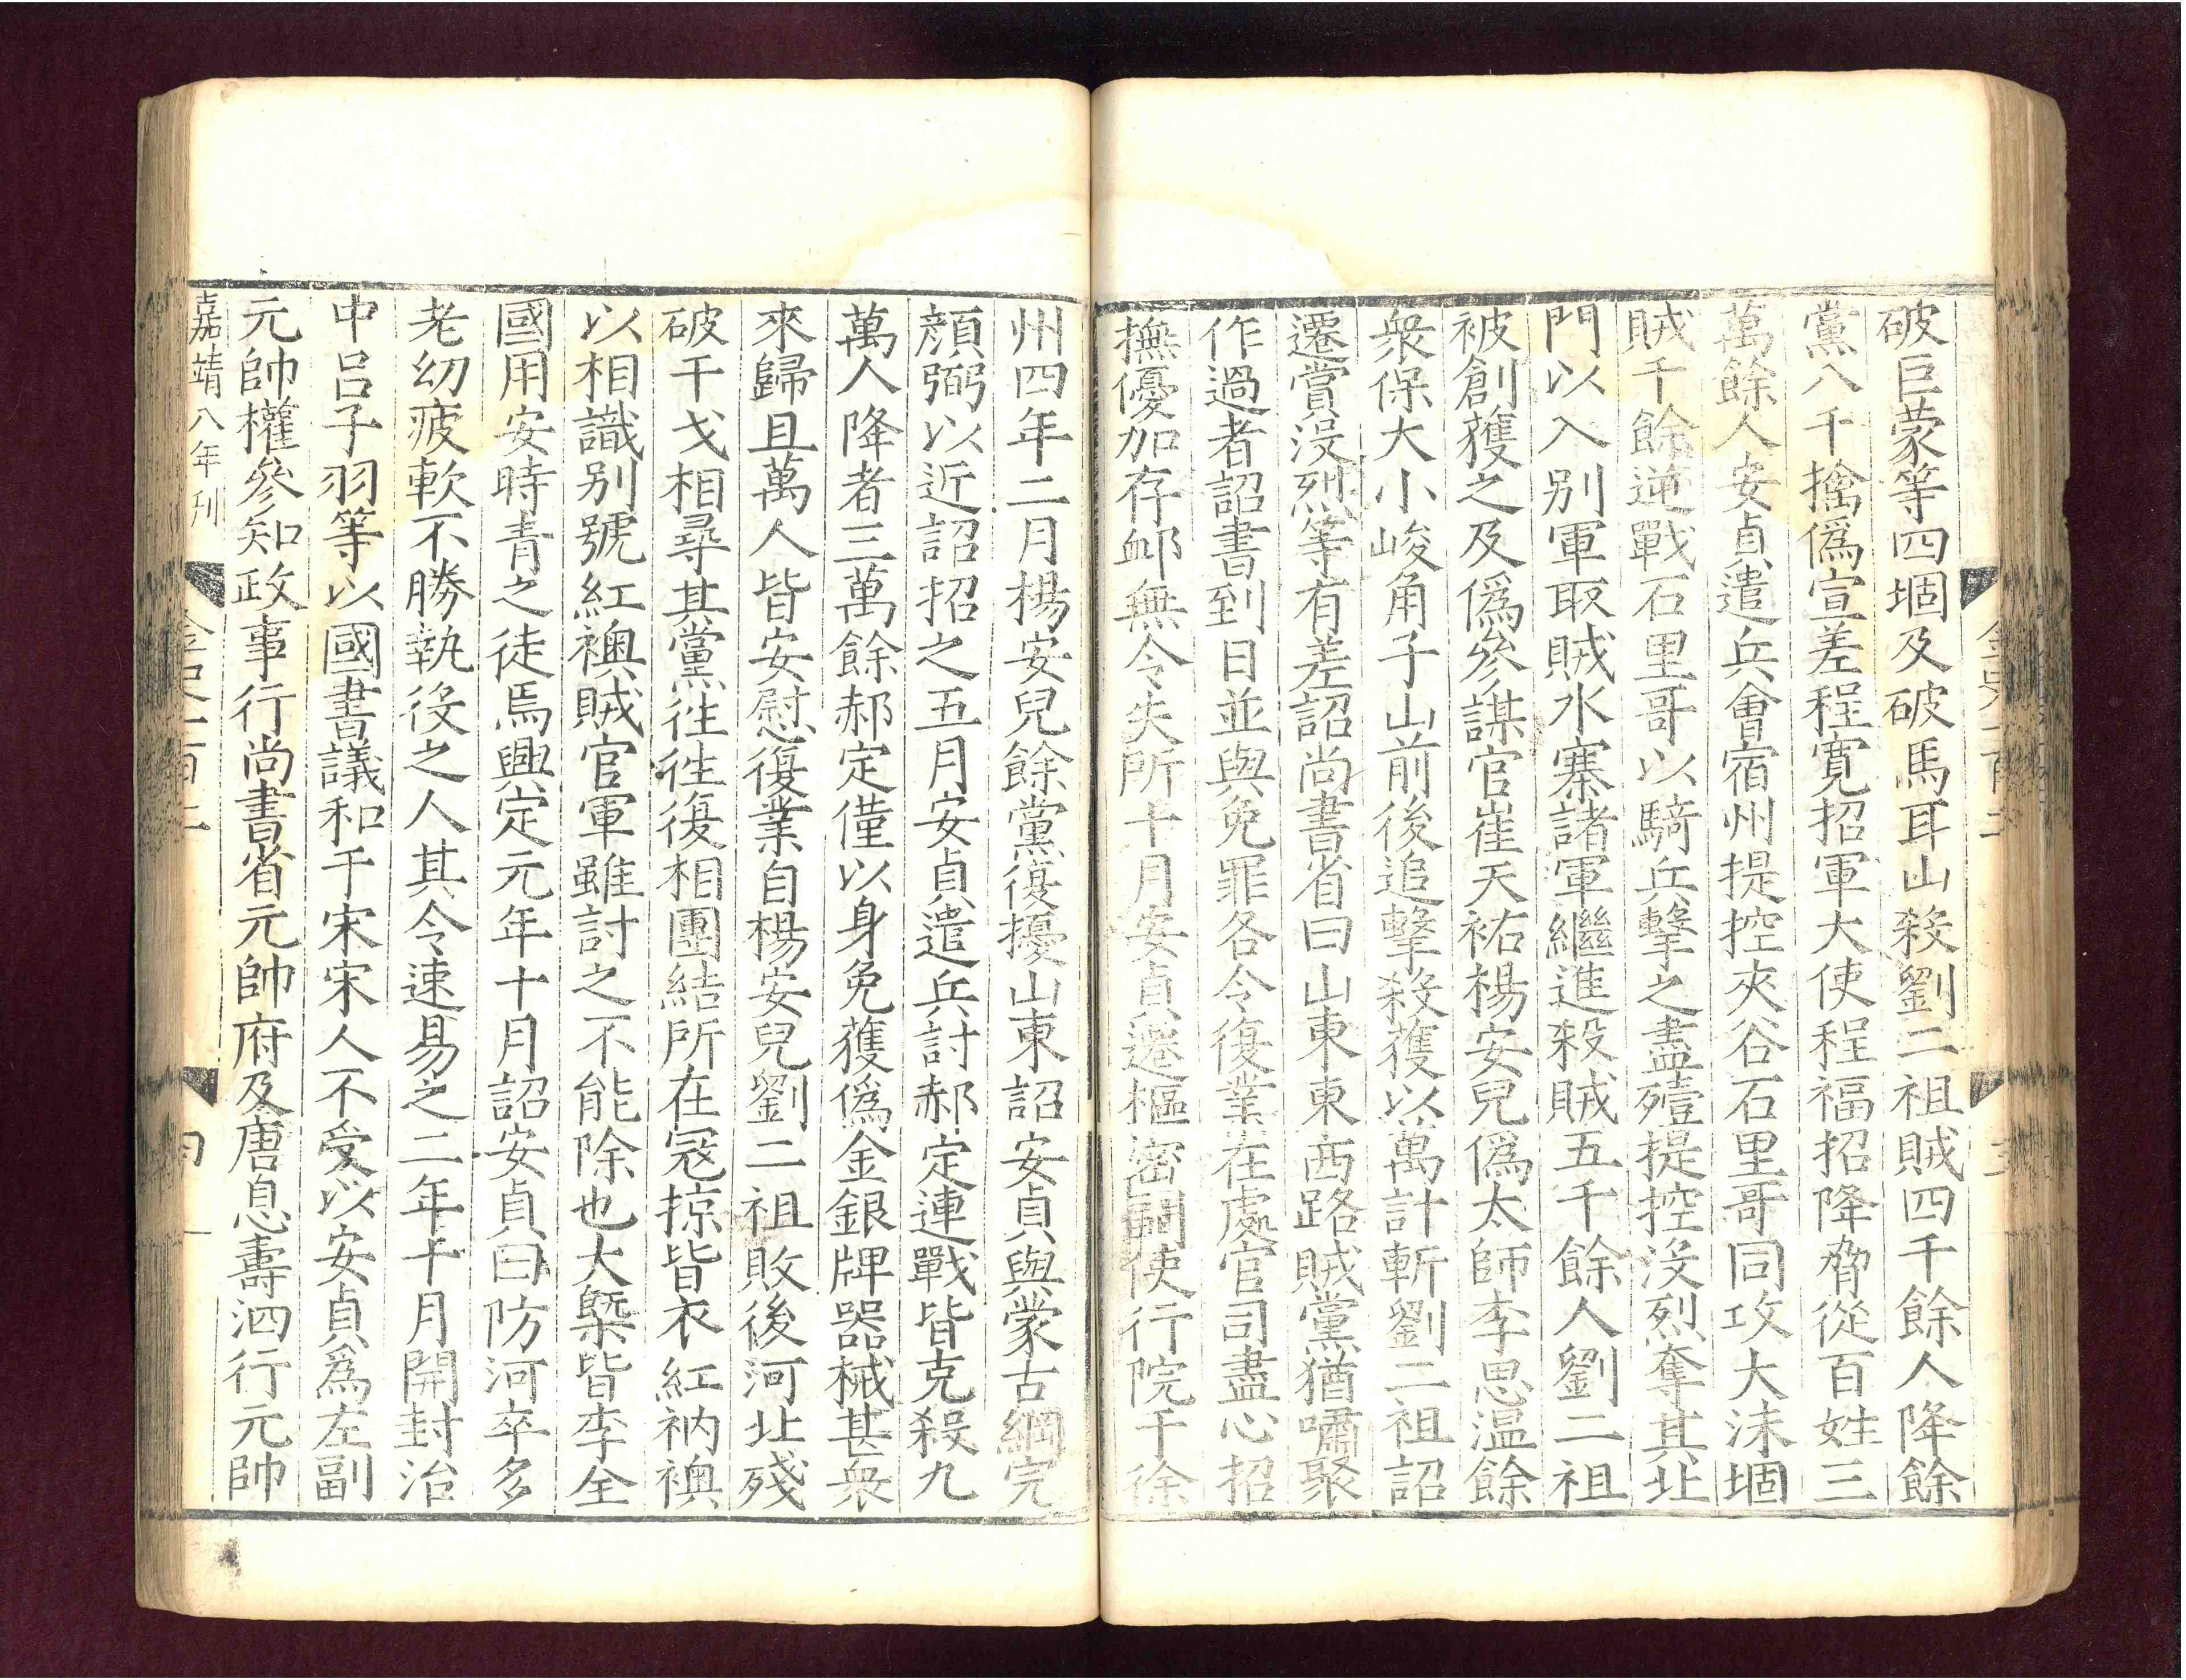 破巨蒙等四堌及破馬耳山殺劉二祖賊四千餘人降餘
黨八千擒僞宣差程寛招軍大使程福招降脅從百姓三
萬餘人安貞遣兵會宿州提控夾谷石里哥同攻大沫堌
賊千餘逆戰石里哥以騎兵擊之盡殪提控没烈奪其北
門以入别軍取賊水寨諸軍繼進殺賊五千餘人劉二祖
被創獲之及僞參謀官崔天祐楊安兒僞太師李思温餘
衆保大小峻角子山前後追擊殺獲以萬計斬劉二祖詔
遷賞没烈等有差詔尚書省曰山東東西路賊黨猶嘯聚
作過者詔書到日並與免罪各令復業在處官司盡心招
撫優加存䘏無令失所十月安貞遷樞密副使行院于徐
州四年二月楊安兒餘黨復擾山東詔安貞與蒙古綱完
顔弼以近詔招之五月安貞遣兵討郝定連戰皆克殺九
萬人降者三萬餘郝定僅以身免獲僞金銀牌器械甚衆
來歸且萬人皆安慰復業自楊安兒劉二祖敗後河北殘
破干戈相尋其黨徃徃復相團結所在冦掠皆衣紅衲襖
以相識别號紅襖賊官軍雖討之不能除也大槩皆李全
國用安時青之徒焉興定元年十月詔安貞曰防河卒多
老幼疲軟不勝執役之人其令速易之二年十月開封治
中呂子羽等以國書議和于宋宋人不受以安貞爲左副
元帥權參知政事行尚書省元帥府及唐息壽泗行元帥
嘉靖八年刋
金史一百二
四